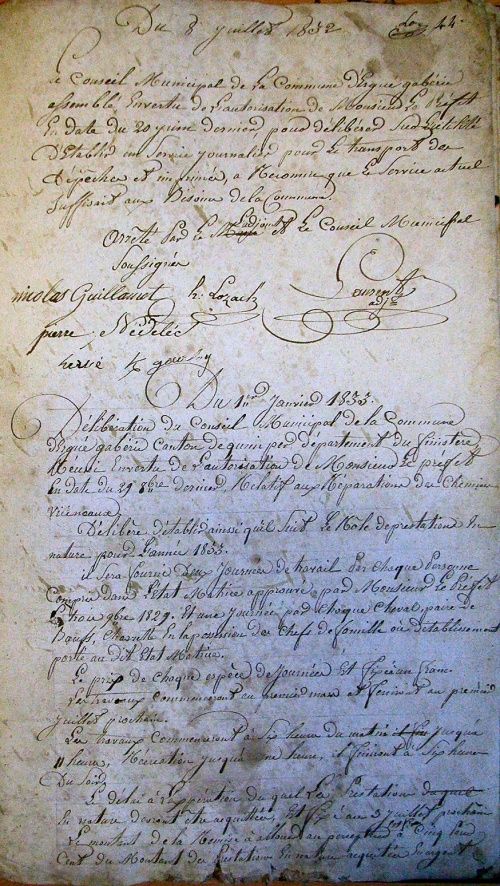 Du 8 Juillet 1832 44.
Le Conseil Municipal de la Commune d'Ergué gabéric
assemblé Envertu de l'autorisation de Monsieur le Préfet
En date du 20 juin dernier, pour délibérer Sur
D'Etablir un Service journalier pour le transport des
Dépeches et imprimés, a Reconnu que le Service actuel
Suffisait aux Besoins de la Commune.
Arrêté par le Maire L'adjoint Et Le Conseil Municipal
Soussignés
nicolas Guillamot h. Lozach Laurent
adj
pierre Nédélec
hervé
Du 1er Janvier 1833.
Délibération du Conseil Municipal de la Commune
d'Ergué gabéric Canton de quimper département du finistère
Réuni Envertu de L'autorisation de Monsieur Le préfet
En date du 29 8bre dernier, Rélatif aux Réparations du Chemins
Vicineaux,
Délibère d'établir ainssi quil Suit le Role de prestation En
nature pour l'année 1833.
il Sera fournie deux Journées de travail par Chaque personne
Compris dans l'Etat Matrice approuvé par Monsieur le Préfet
9bre 1829. Et une Journée par Chaque Cheval, paire de
Bœufs, Charrette En la possession des Chefs de famille ou d'établissement
porté au dit Etat Matrice.
Le prix de Chaque espèce de Journée Est fixé à un franc.
Les travaux Commenceront au premier mars et finiront au premier
Juillet prochain.
Les travaux Commenceront à Six heures du matin jusqu'à
11 heures, Récréation jusqu'à une heure, et finiront à Six heures
Du Soir.
Le délai à L'expiration duquel La Prestation
En nature devront être acquittées, Est fixé au 5 juillet prochain
Le montant de la Remise à allouer au percepteur Cinq pour
Cent du Montant des Prestation En nature acquittées En argent